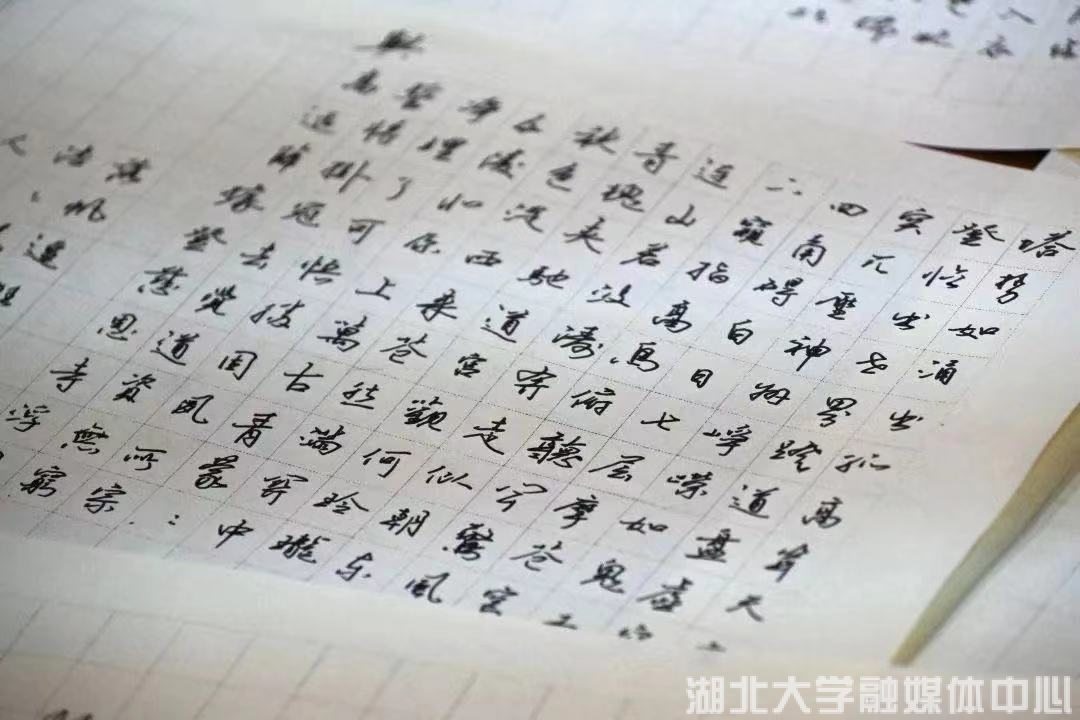 塔势如涌出孤高耸天
登临出世界蹬道盘虚
突兀壓神州峥嵘如鬼工
四角碍白日七层摩苍
下窥指高鸟俯聽闻驚風
连山若波濤奔走似朝东
青槐夹驰道宫觀何玲瓏
秋色從西来苍然满関中
五陵北原上萬古青濛
净理了可悟勝因夙所宗
誓将掛冠去觉道资無窮
與高适薛据登慈恩寺浮
湖北大学融媒体中心